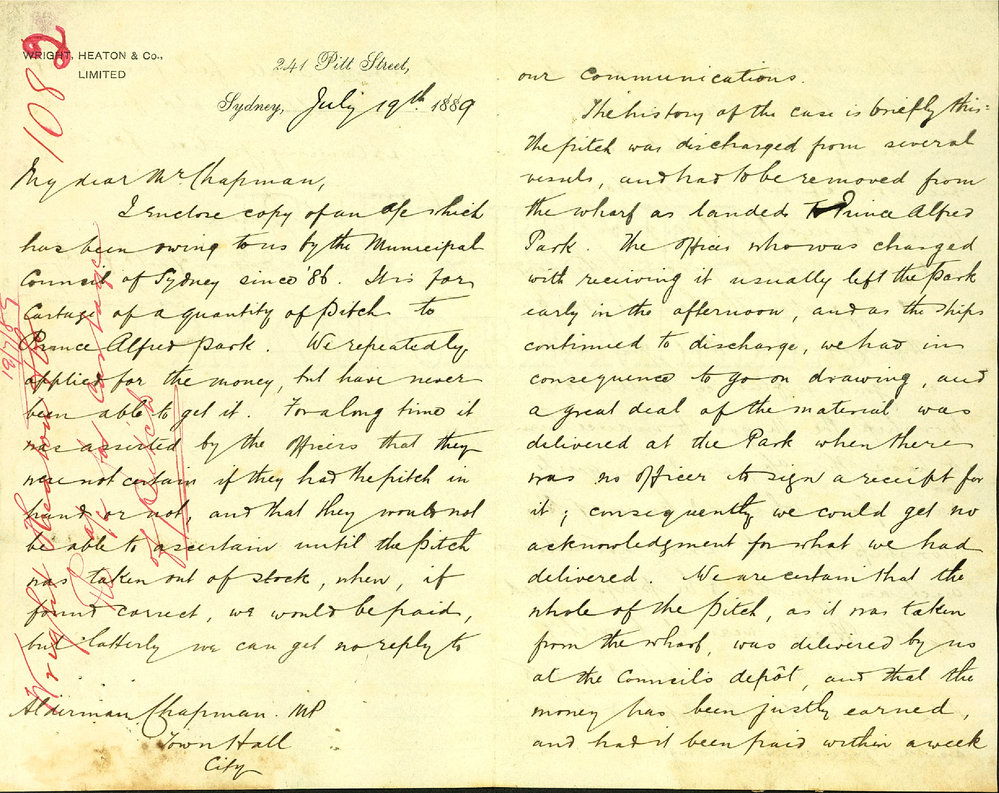 WRIGHT, HEATON & Co.,
LIMITED
1082
241 Pitt Street,
Sydney, July 19th 1889
My dear Mr Chapman,
I enclose copy of an a/c which
has been owing to us by the Municipal
Council of Sydney since 86. It is for
Cartage of a quantity of pitch to
Prince Alfred Park. We repeatedly
applied for the money, but have never
been able to get it. For a long time it
was asserted by the officers that they
were not certain if they had the pitch in
hand or not, and that they would not
be able to ascertain until the pitch
was taken out of stock, when, if
found correct, we would be paid,
but latterly we can get no reply to
Alderman Chapman. MP
Town Hall
City
our communications.
The history of the case is briefly this:
The pitch was discharged from several
vessels, and had to be removed from
the wharf as landed to Prince Alfred
Park. The officer who was charged
with receiving it usually left the Park
early in the afternoon, and as the ships
continued to discharge, we had in
consequence to go on drawing, and
a great deal of the material was
delivered at the Park when there
was no officer to sign a receipt for
it; consequently we could get no
acknowledgment for what we had
delivered. We are certain that the
whole of the pitch, as it was taken
from the wharf, was delivered by us
at the Councils depôt, and that the
money has been justly earned,
and had it been paid within a week
Wright Heaton & Co 19/7/89
Re a/c for cartage
of pitch